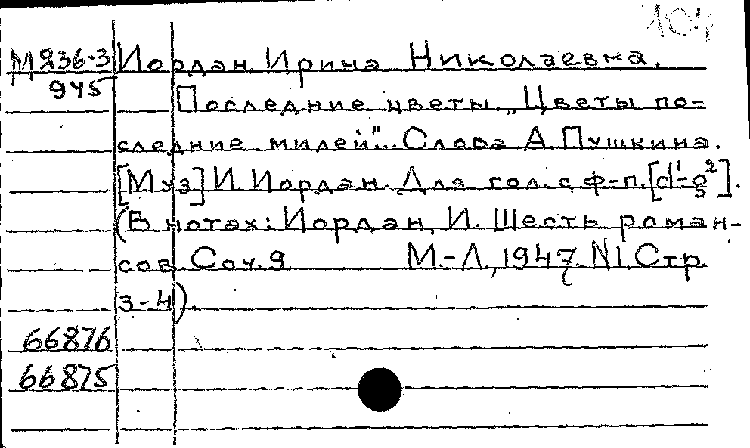 104
М236-3 Иордан Ирина Николаевна.
945
Последние цветы. „Цветы по-
следние милей"... Слова А. Пушкина.
[Муз.] И. Иордан. Для гол. с ф-п. [d¹-g²].
(В нотах: Иордан, И. Шесть роман-
сов. Соч. 9 М.-Л., 1947. №1. Стр.
3-4).
66876
66875